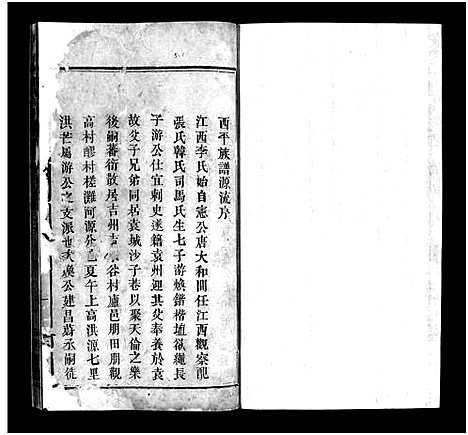 西平族譜源流序
江西李氏始自憲公唐大和間任江西觀察配
張氏韓氏司馬氏生七子游煥鍇楷埴欲繩長
子游公仕宜刺史遂籍袁州迎其父奉養於袁
故父子兄弟同居袁城沙子巷以聚天倫之樂
後嗣蕃衍散居吉州谷村廬邑朋田朋觀
高村醪村槎灘河源分夏午上高洪源七里
洪芒屬游公之支派也煥公建昌蔚丞嗣徙